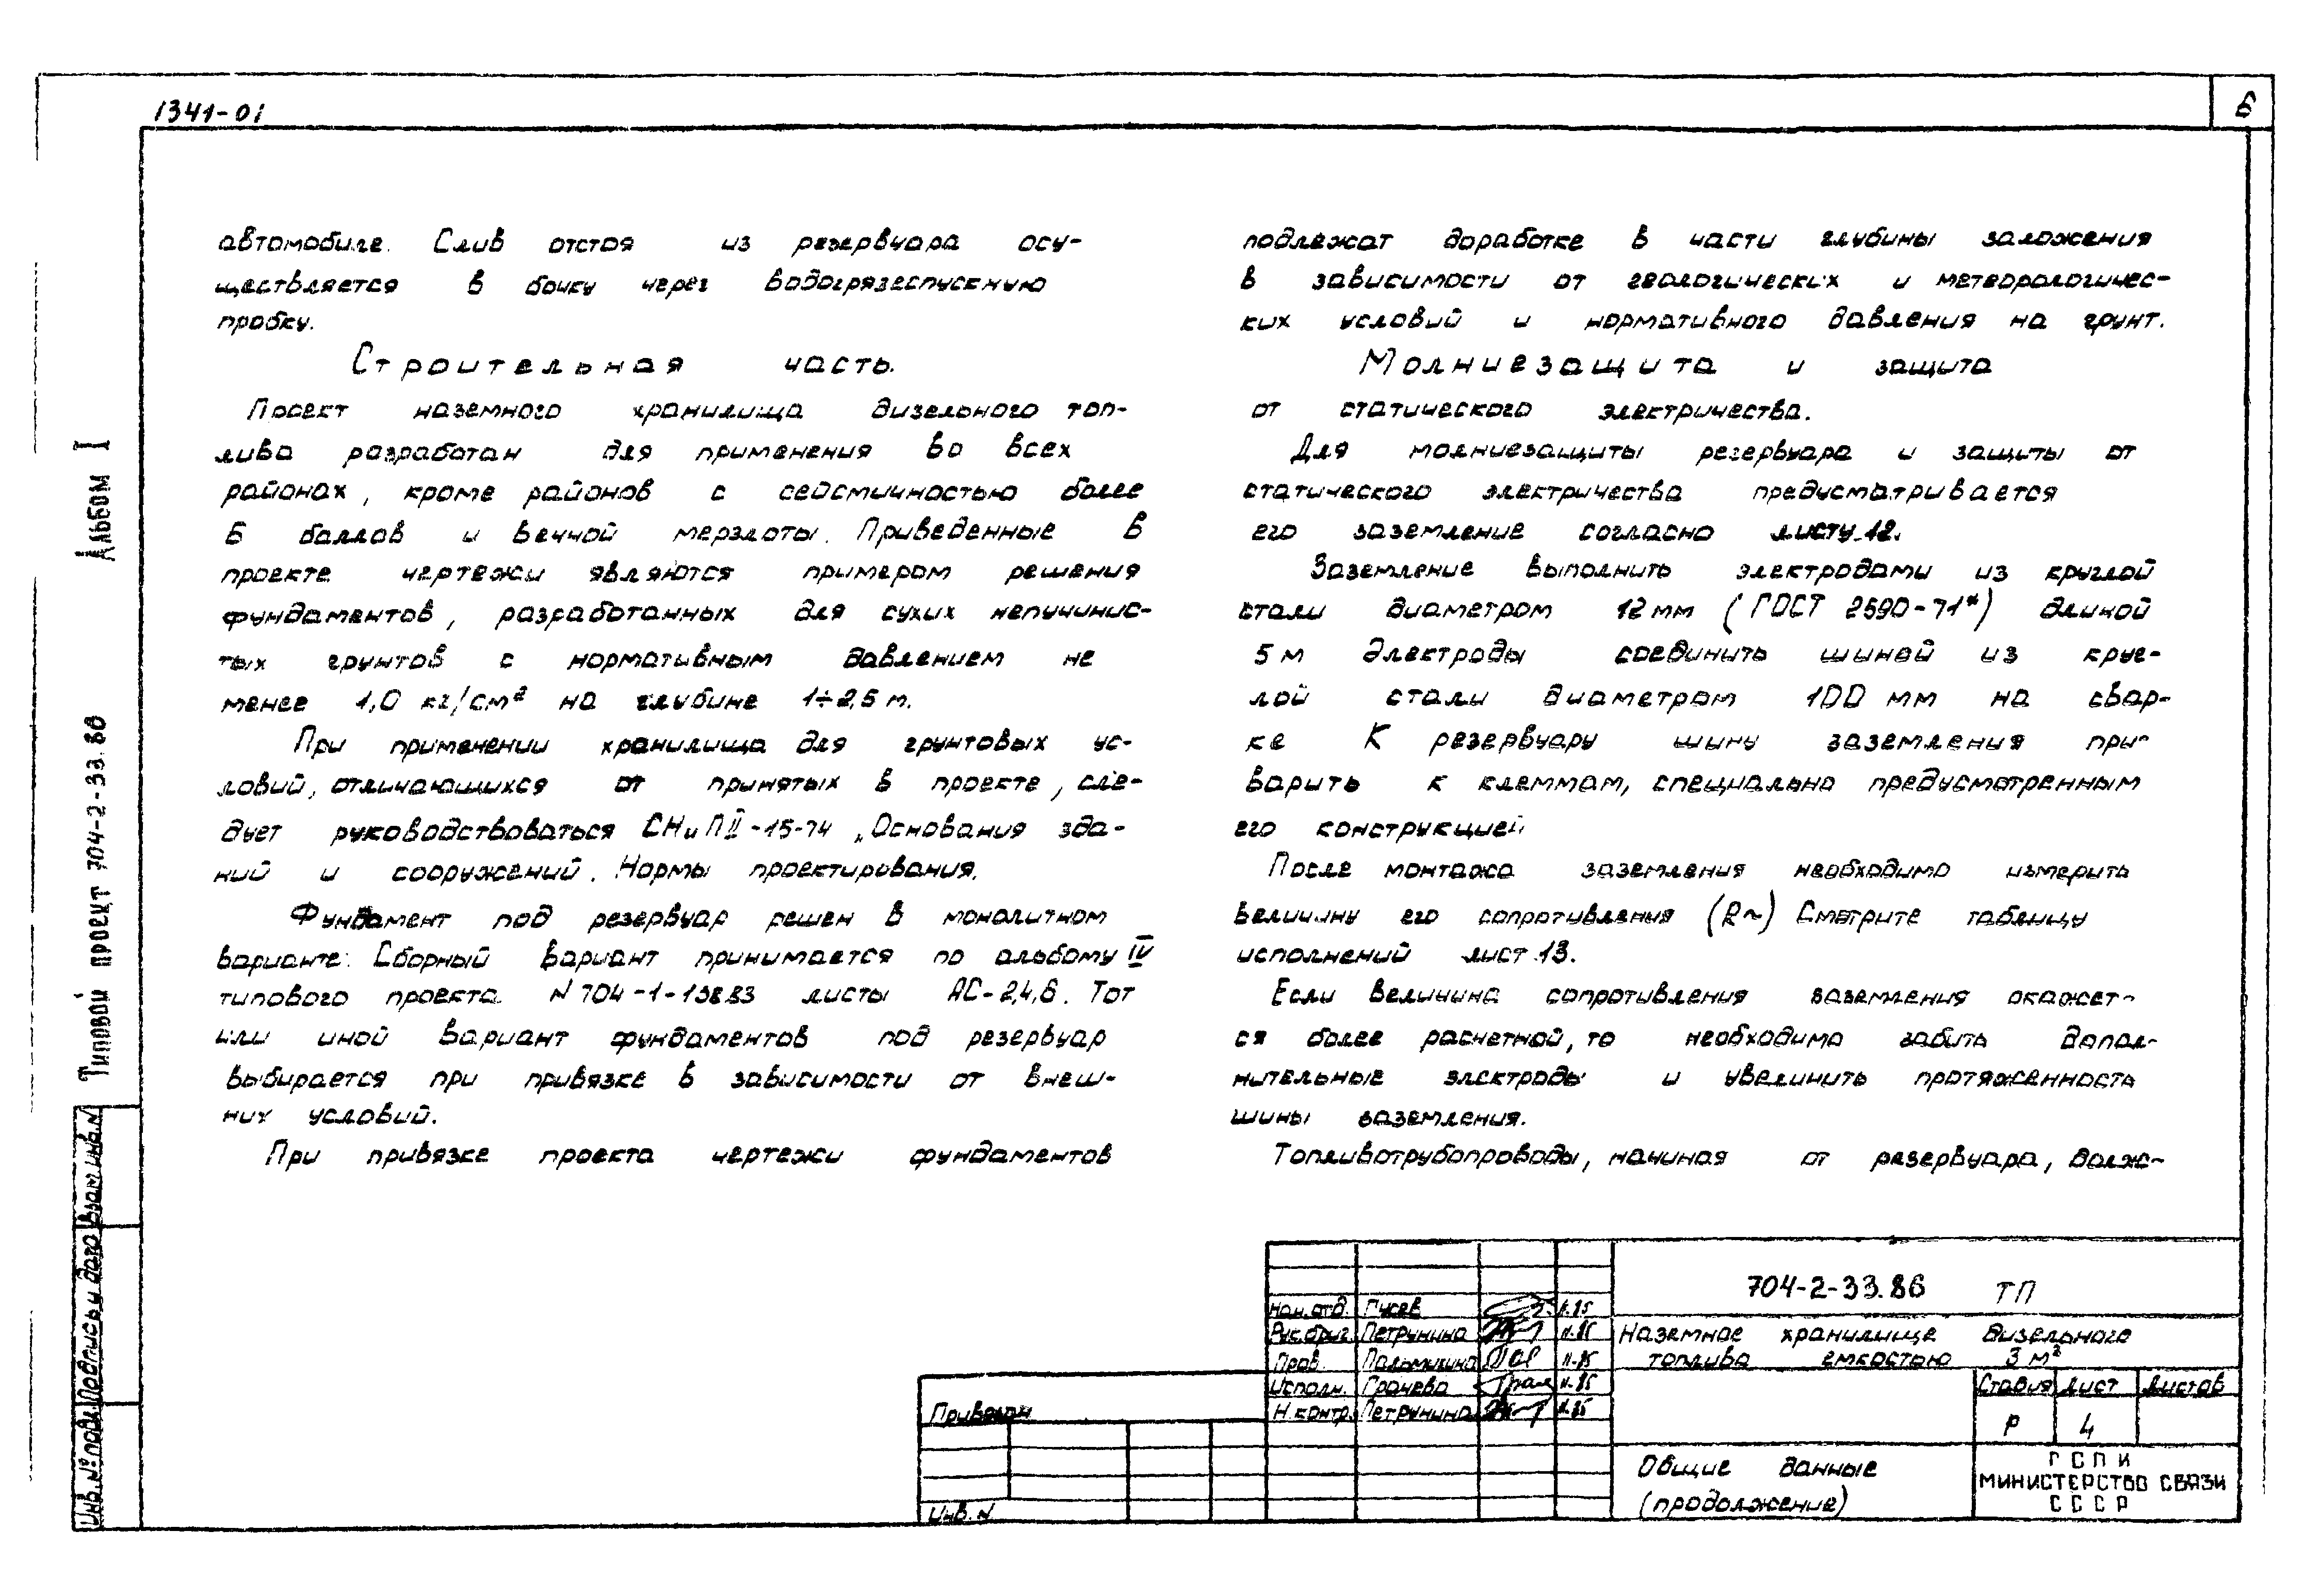 1341-01
6
автомобиле. Слив отстоя из резервуара осу-
ществляется в бочку через водогрязеспускную
пробку.
Строительная часть.
Проект наземного хранилища дизельного топ-
лива разработан для применения во всех
районах, кроме районов с сейсмичностью более
6 баллов и вечной мерзлоты. Приведенные в
проекте чертежи являются примером решения
фундаментов, разработанных для сухих непучинис-
тых грунтов с нормативным давлением не
менее 1,0 кг/см² на глубине 1÷2,5 м.
При применении хранилища для грунтовых ус-
ловий, отличающихся от принятых в проекте, сле-
дует руководствоваться СНиП II-15-74 „Основания зда-
ний и сооружений. Нормы проектирования.
Фундамент под резервуар решен в монолитном
варианте. Сборный вариант принимается по альбому IV
типового проекта N 704-1-158.83 листы АС-2,4,6. Тот
или иной вариант фундаментов под резервуар
выбирается при привязке в зависимости от внеш-
них условий.
При привязке проекта чертежи фундаментов
подлежат доработке в части глубины заложения
в зависимости от геологических и метеорологичес-
ких условий и нормативного давления на грунт.
Молниезащита и защита
от статического электричества.
Для молниезащиты резервуара и защиты от
статического электричества предусматривается
его заземление согласно листу 12.
Заземление выполнить электродами из круглой
стали диаметром 12 мм (ГОСТ 2590-71*) длиной
5 м Электроды соединить шиной из круг-
лой стали диаметром 100 мм на свар-
ке К резервуару шину заземления при-
варить к клеммам, специально предусмотренным
его конструкцией
После монтажа заземления необходимо измерить
величину его сопротивления (R~) Смотрите таблицу
исполнений лист 13.
Если величина сопротивления заземления окажет-
ся более расчетной, то необходимо забить допол-
нительные электроды и увеличить протяженность
шины заземления.
Топливотрубопроводы, начиная от резервуара, долж-
Альбом I
Типовой проект 704-2-33.86
Взам инв. N
Подпись и дата
Инв. № подл.
Нач. отд. Гусев 11.85
Рук. бриг. Петрунина 11.85
Пров. 11-85
Исполн. Грачева 11.85
Н. контр. Петрунина 11.85
Привязан
Инв. N
704-2-33.86 ТП
Наземное хранилище дизельного
топлива емкостью 3 м³
Стадия Лист Листов
Р 4
Общие данные
(продолжение)
ГСПИ
МИНИСТЕРСТВО СВЯЗИ
СССР